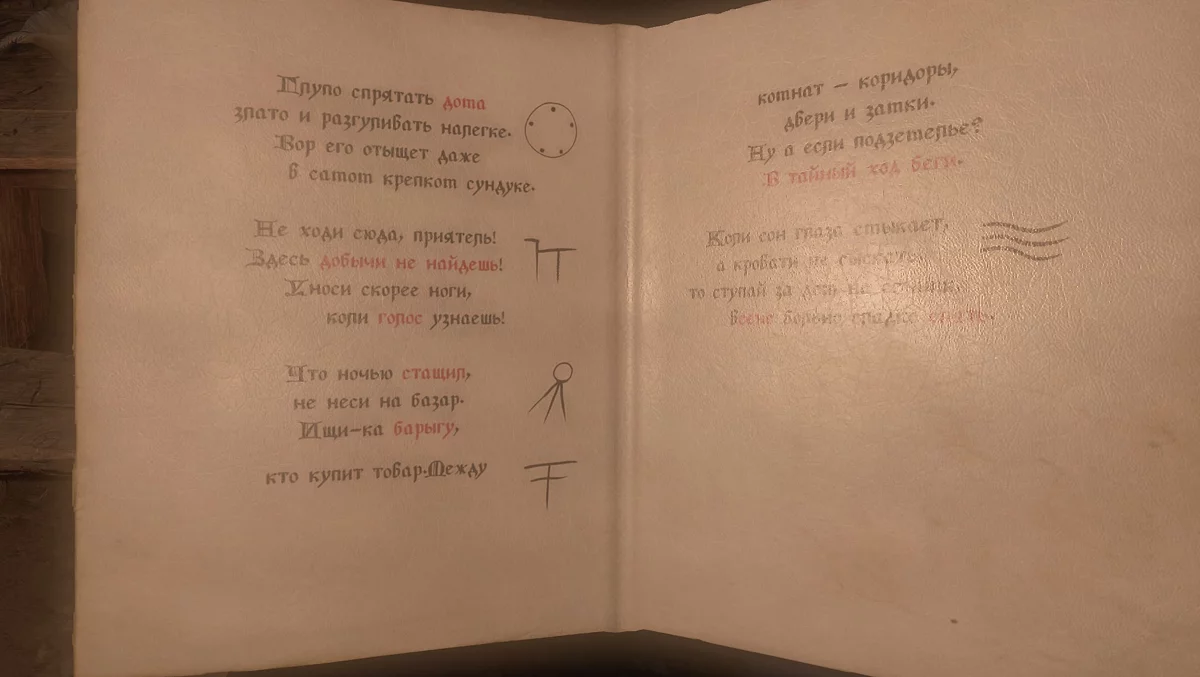 Глупо спрятать дома
злато и разгуливать налегке.
Вор его отыщет даже
в самом крепком сундуке.
Не ходи сюда, приятель!
Здесь добычи не найдешь!
Уноси скорее ноги,
коли голос узнаешь!
Что ночью стащил,
не неси на базар.
Ищи-ка барыгу,
кто купит товар.Между
комнат – коридоры,
двери и замки.
Ну а если подземелье?
В тайный ход беги.
Коли сон глаза смыкает,
а кровати не сыскать,
то ступай за
Всене больно сладко спать.